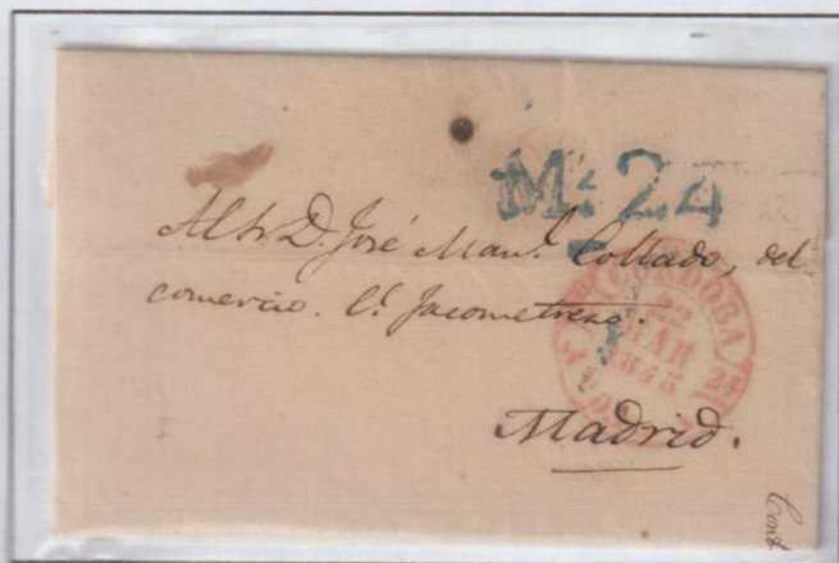 M: 24
Al Sr D. José Man.l Collado, del
comercio. C.e Jacometrezo.
CORDOBA
22
MAR
Madrid.
Cont